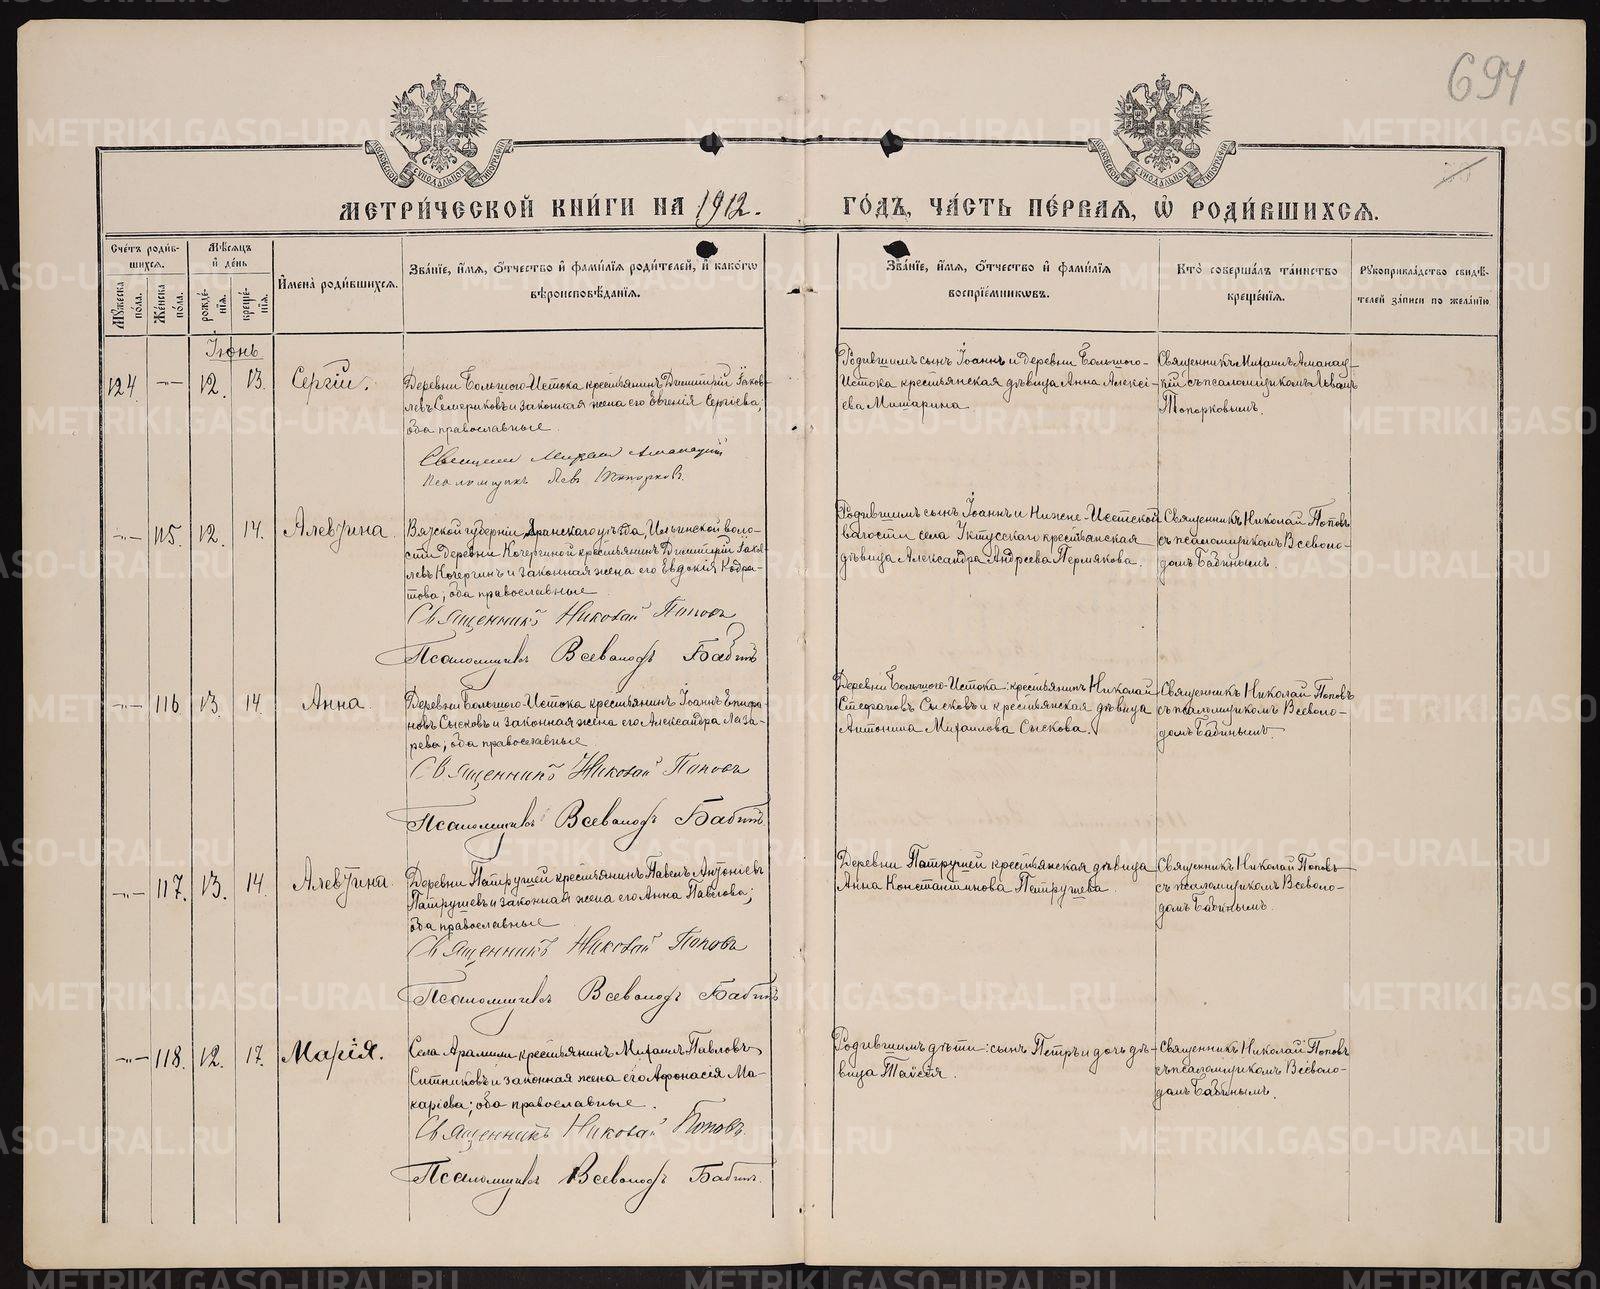 694
МЕТРИ́ЧЕСКОЙ КНИ́ГИ НА 1912.
ГО́ДЪ, ЧА́СТЬ ПЕ́РВАЯ, Ѡ҆ РОДИ́ВШИХСѦ.
Сче́тъ роди́в-
шихсѧ.
Мѣ́сѧцъ
и҆ де́нь
Мꙋ́жеска по́ла.
Же́нска по́ла.
рожде́-
нїѧ.
креще́-
нїѧ.
И҆мена̀ роди́вшихсѧ.
Зва́нїе, и҆́мѧ, ѻ҆́тчество и҆ фами́лїѧ роди́телей, и҆ како́гѡ
вѣроисповѣ́данїѧ.
Зва́нїе, и҆́мѧ, ѻ҆́тчество и҆ фами́лїѧ
воспрїе́мникѡвъ.
Кто̀ соверша́лъ та́инство
креще́нїѧ.
Рꙋкоприкла́дство свидѣ́-
телей за́писи по жела́нїю
Іюнь
124 —"— 12. 13. Сергій.
Деревни Большого-Истока крестьянинъ Димитрій Іаков-
левъ Семериковъ и законная жена его Евгенія Сергіева;
оба православные
Священн Михаил Аманацкій
Псаломщикъ Левъ Топорковъ.
Родившимъ сынъ Іоаннъ и деревни Большого-
Истока крестьянская дѣвица Анна Алексі-
ева Мишарина
Священникъ Михаилъ Аманац-
кій съ псаломщикомъ Львомъ
Топорковымъ.
—"— 115. 12. 14. Алевтина
Вятской губерніи, Яранскаго уѣзда, Ильинской воло-
сти деревни Кочергиной крестьянинъ Димитрій Іаков-
левъ Кочергинъ и законная жена его Евдокія Кодра-
това; оба православные
Священникъ Николай Поповъ
Псаломщикъ Всеволодъ Бабинъ
Родившимъ сынъ Іоаннъ и Нижне-Исетской
волости села Уктусскаго крестьянская
дѣвица Александра Андреева Пермякова.
Священникъ Николай Поповъ
съ псаломщикомъ Всеволо-
домъ Бабинымъ.
—"— 116 13. 14. Анна.
Деревни Большого-Истока крестьянинъ Іоаннъ Епифа-
новъ Сысковъ и законная жена его Александра Лаза-
рева; оба православные
Священникъ Николай Поповъ
Псаломщикъ Всеволодъ Бабинъ
Деревни Большого-Истока: крестьянинъ Николай
Стефановъ Сысковъ и крестьянская дѣвица
Антонина Михаилова Сыскова.
Священникъ Николай Поповъ
съ псаломщикомъ Всеволо-
домъ Бабинымъ.
—"— 117. 13. 14. Алевтина.
Деревни Патрушей крестьянинъ Павелъ Антоніевъ
Патрушевъ и законная жена его Анна Павлова;
оба православные
Священникъ Николай Поповъ
Псаломщикъ Всеволодъ Бабинъ
Деревни Патрушей крестьянская дѣвица
Анна Константинова Патрушева.
Священникъ Николай Поповъ
съ псаломщикомъ Всеволо-
домъ Бабинымъ.
—"— 118. 12. 17. Марія.
Села Арамили крестьянинъ Михаилъ Павловъ
Ситниковъ и законная жена его Афонасія Ма-
каріева; оба православные.
Священникъ Николай Поповъ
Псаломщикъ Всеволодъ Бабинъ.
Родившимъ дѣти: сынъ Петръ и дочь дѣ-
вица Таисія.
Священникъ Николай Поповъ
съ псаломщикомъ Всеволо-
домъ Бабинымъ.
METRIKI.GASO-URAL.RU